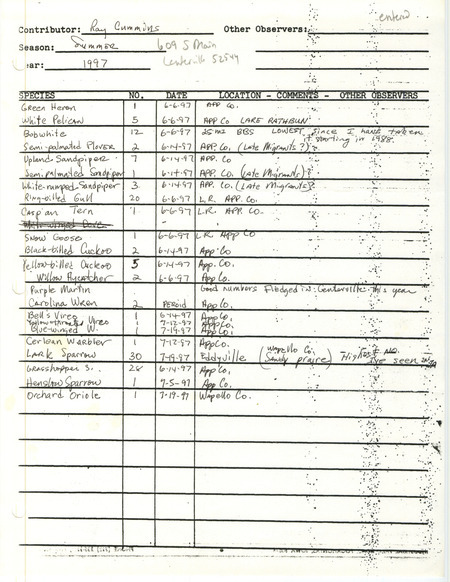 entered
Contributor: Ray Cummins Other Observers:
Season: Summer 609 S Main
ear: 1997 Centerville 52544
SPECIES NO. DATE LOCATION - COMMENTS - OTHER OBSERVERS
Green Heron 1 6-6-97 App Co.
White Pelican 5 6-6-97 App Co LAKE RATHBUN
Bobwhite 12 6-6-97 25 mi BBS LOWEST since I have taken
it starting in 1988.
Semi-palmated Plover 2 6-14-97 App. Co. (Late Migrants?)
Upland Sandpiper 7 6-14-97 App. Co
Semi palmated Sandpiper 1 6-14-97 App. Co. (Late Migrants)?
White-rumped Sandpiper 3 6-14-97 App. Co. (Late Migrants)?
Ring-billed Gull 20 6-6-97 L.R. App. Co.
Caspian Tern 1 6-6-97 L.R. App. Co.
Snow Goose 1 6-6-97 L.R. App Co
Black-billed Cuckoo 2 6-14-97 App. Co
Yellow-billed Cuckoo 5 6-14-97 App. Co.
Willow Flycatcher 2 6-6-97 App. Co.
Purple Martin Good numbers Fledged in Centerville this year
Carolina Wren 2 PERIOD App Co.
Bell's Vireo 1 6-14-97 App Co.
Yellow-throated Vireo 1 7-12-97 App Co.
Blue-winged W. 1 7-19-97 App Co.
Cerulean Warbler 1 7-12-97 App Co.
Lark Sparrow 30 7-19-97 Eddyville (Wapello Co. Sandy praire) Highest No.
I've seen
Grasshopper S. 28 6-14-97 App Co,
Henslow Sparrow 1 7-5-97 App Co.
Orchard Oriole 1 7-19-97 Wapello Co.